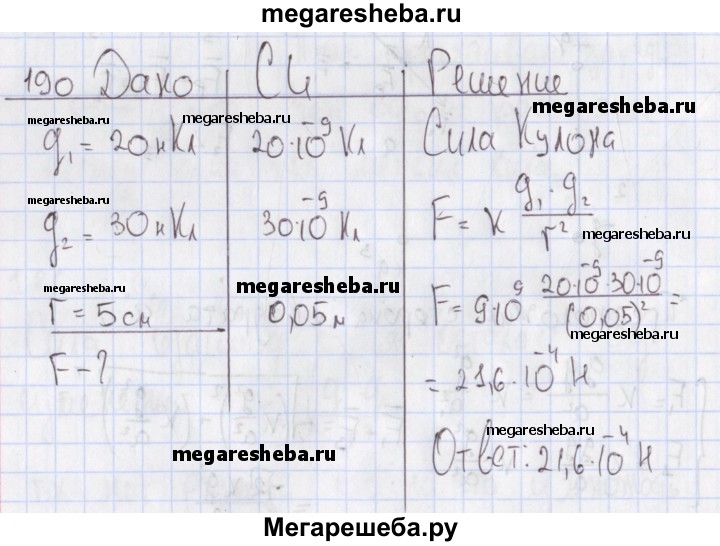 megaresheba.ru
190 Дано СИ Решение
megaresheba.ru
megaresheba.ru megaresheba.ru
g₁ = 20нКл 20·10⁻⁹ Кл Сила Кулона
megaresheba.ru
g₂ = 30нКл 30·10⁻⁹ Кл F = к g₁·g₂ / r²
megaresheba.ru megaresheba.ru
r = 5см 0,05м F = 9·10⁹ 20·10⁻⁹·30·10⁻⁹ / (0,05)² =
megaresheba.ru
F - ? = 21,6·10⁻⁴ Н
megaresheba.ru
megaresheba.ru
Ответ: 21,6·10⁻⁴ Н
Мегарешеба.ру